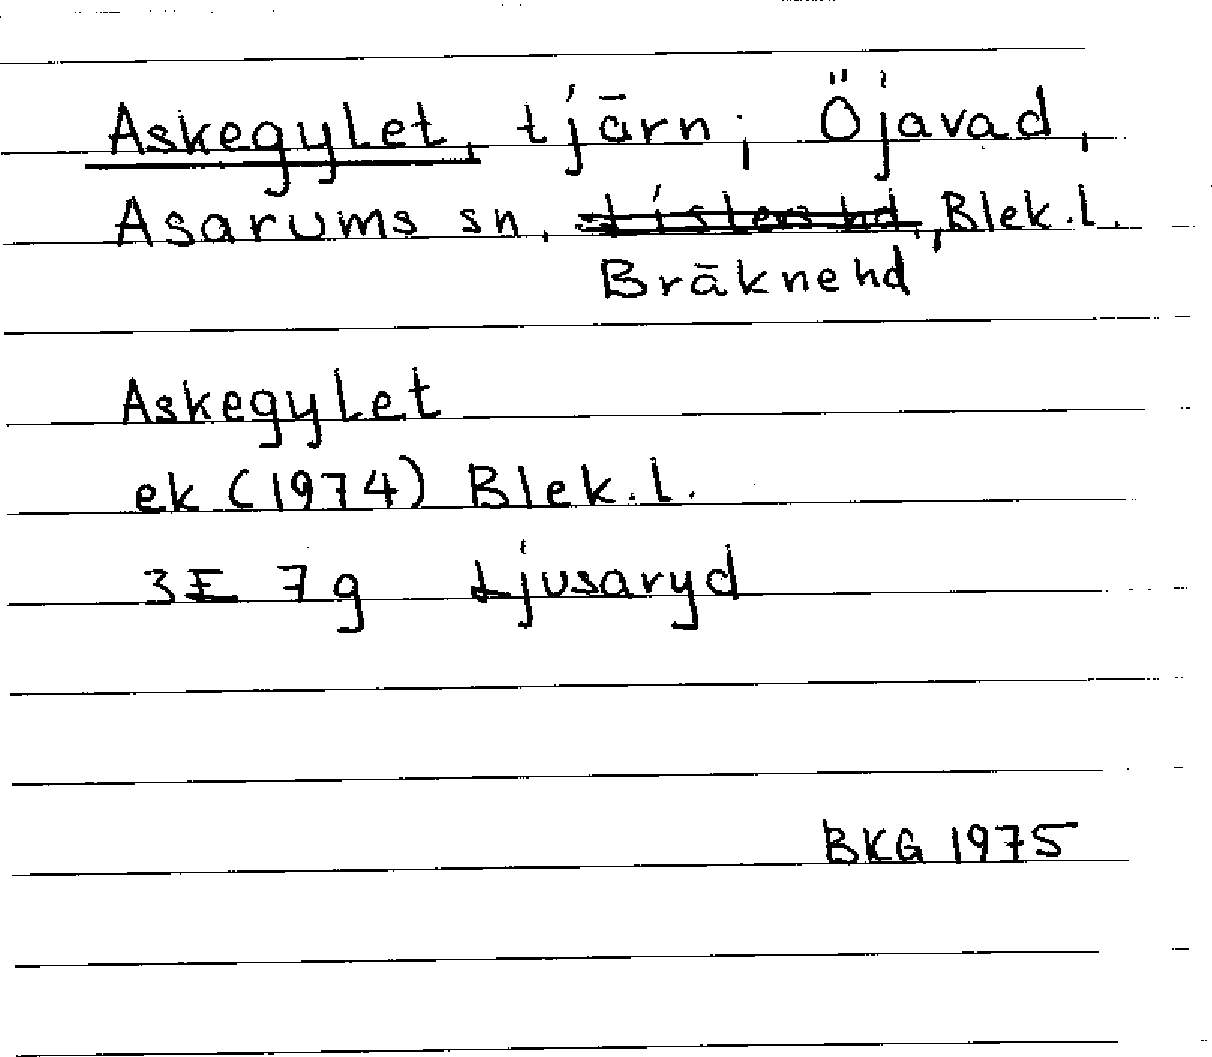 Askegylet, tjärn; Öjavad,
Asarums sn, Listers hd, Blek.l.
Bräknehd
Askegylet
ek (1974) Blek.l.
3E 7g Ljusaryd
BKG 1975